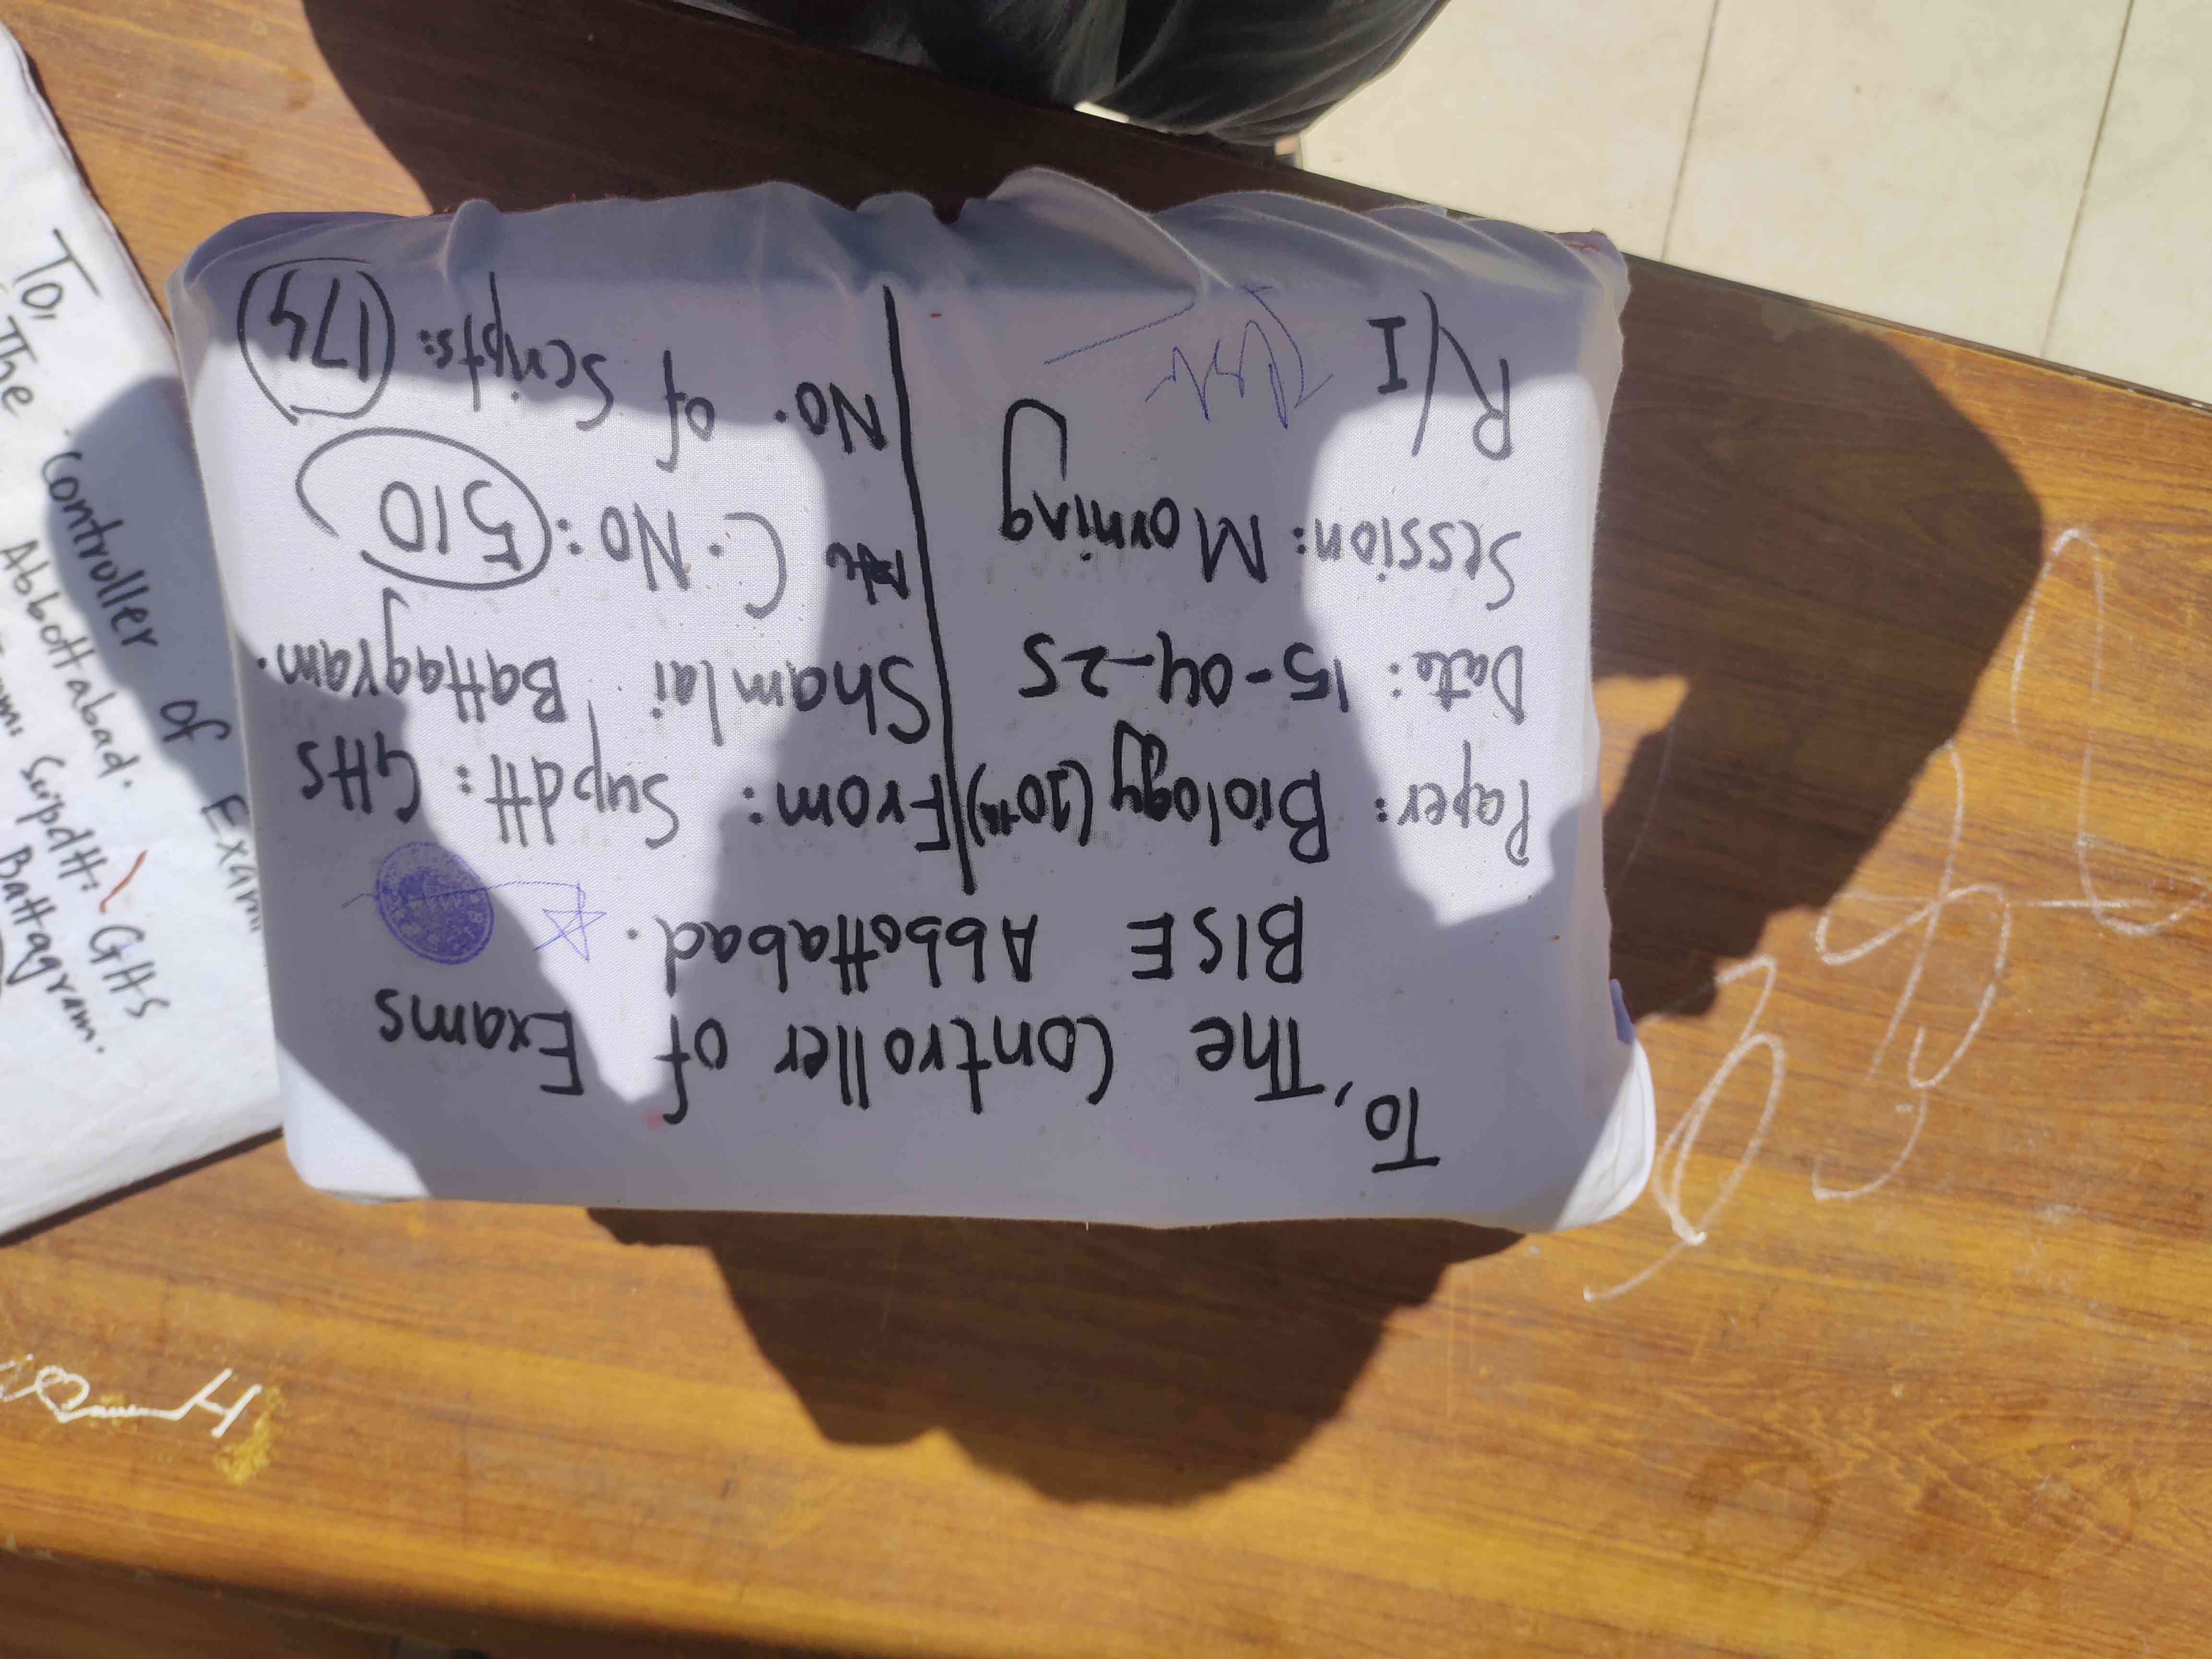 To, The Controller of Exams
BISE Abbottabad.
Paper: Biology (10th)
Date: 15-04-25
Session: Morning
R/I
From: Supdtt: GHS
Shamlai Battagram.
C. No: 510
No. of Scripts: 174
To,
The Controller of Exam
Abbottabad.
Supdtt: GHS
Battagram.